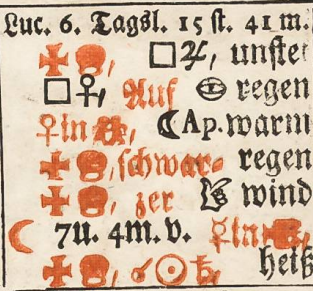 Luc. 6. Tagsl. 15 st. 41 m.
□♃, unste
□♀, Auf regen
♀in ☾Ap. warm
schwar= regen
zer wind
☾ 7u. 4m. v. ☿in
☌☉♄, heiß